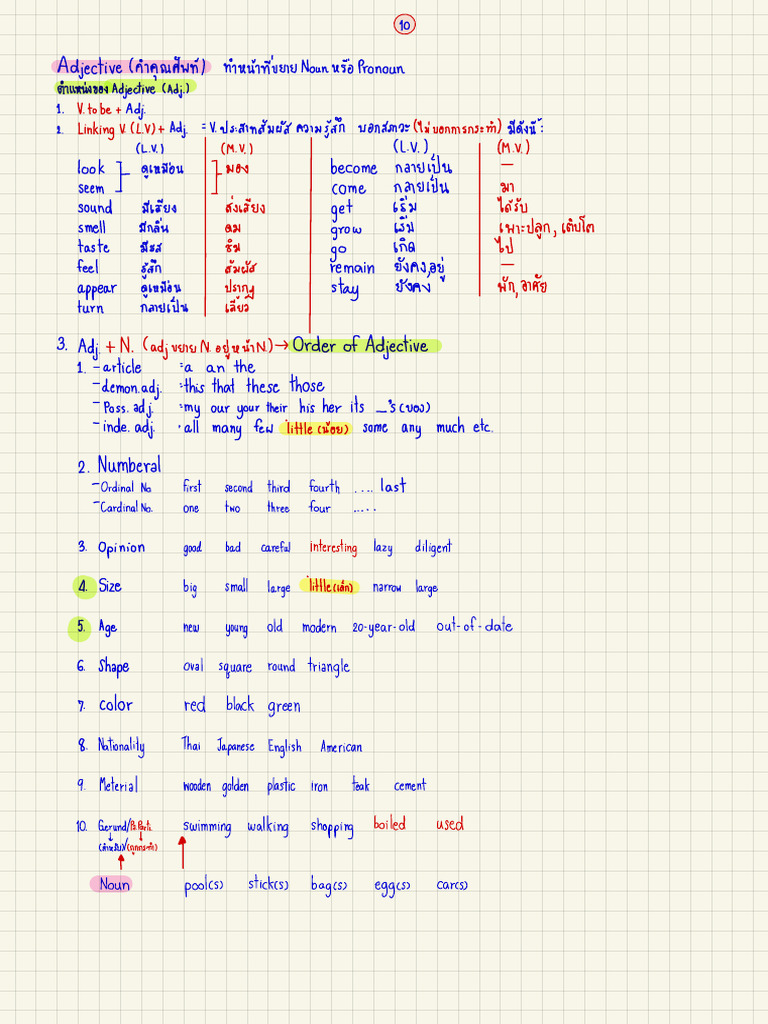 10
Adjective (คำคุณศัพท์) ทำหน้าที่ขยาย Noun หรือ Pronoun
ตำแหน่งของ Adjective (Adj.)
1. V. to be + Adj.
2. Linking V. (L.V) + Adj. = V. ประสาทสัมผัส ความรู้สึก บอกสภาวะ (ไม่บอกการกระทำ) มีดังนี้ :
(L.V.) (M.V.) (L.V.) (M.V.)
look ดูเหมือน มอง become กลายเป็น —
seem come กลายเป็น มา
sound มีเสียง ส่งเสียง get เริ่ม ได้รับ
smell มีกลิ่น ดม grow เริ่ม เพาะปลูก, เติบโต
taste มีรส ชิม go เกิด ไป
feel รู้สึก สัมผัส remain ยังคง,อยู่ —
appear ดูเหมือน ปรากฏ stay ยังคง พัก, อาศัย
turn กลายเป็น เลี้ยว
3. Adj. + N. (adj ขยาย N. อยู่หน้า N.) → Order of Adjective
1. - article = a an the
- demon. adj. = this that these those
- Poss. adj. = my our your their his her its _'s (ของ)
- inde. adj. · all many few little (น้อย) some any much etc.
2. Numberal
- Ordinal No. first second third fourth .... last
- Cardinal No. one two three four .....
3. Opinion good bad careful interesting lazy diligent
4. Size big small large little (เล็ก) narrow large
5. Age new young old modern 20-year-old out-of-date
6. Shape oval square round triangle
7. color red black green
8. Nationality Thai Japanese English American
9. Meterial wooden golden plastic iron teak cement
10. Gerund/Ps.Part. swimming walking shopping boiled used
(สำหรับ)/(ถูกกระทำ)
Noun pool(s) stick(s) bag(s) egg(s) car(s)